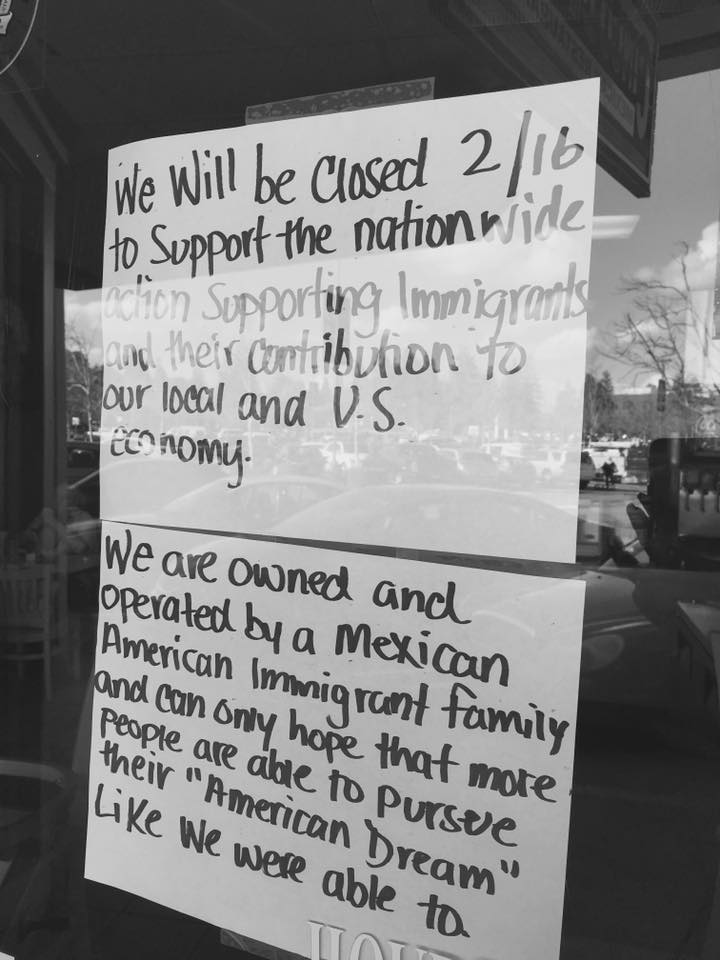 We Will be Closed 2/16
to Support the nationwide
action Supporting Immigrants
and their Contribution to
our local and U.S.
economy.
We are owned and
operated by a Mexican
American Immigrant family
and can only hope that more
people are able to pursue
their "American Dream"
Like We were able to.
HOU